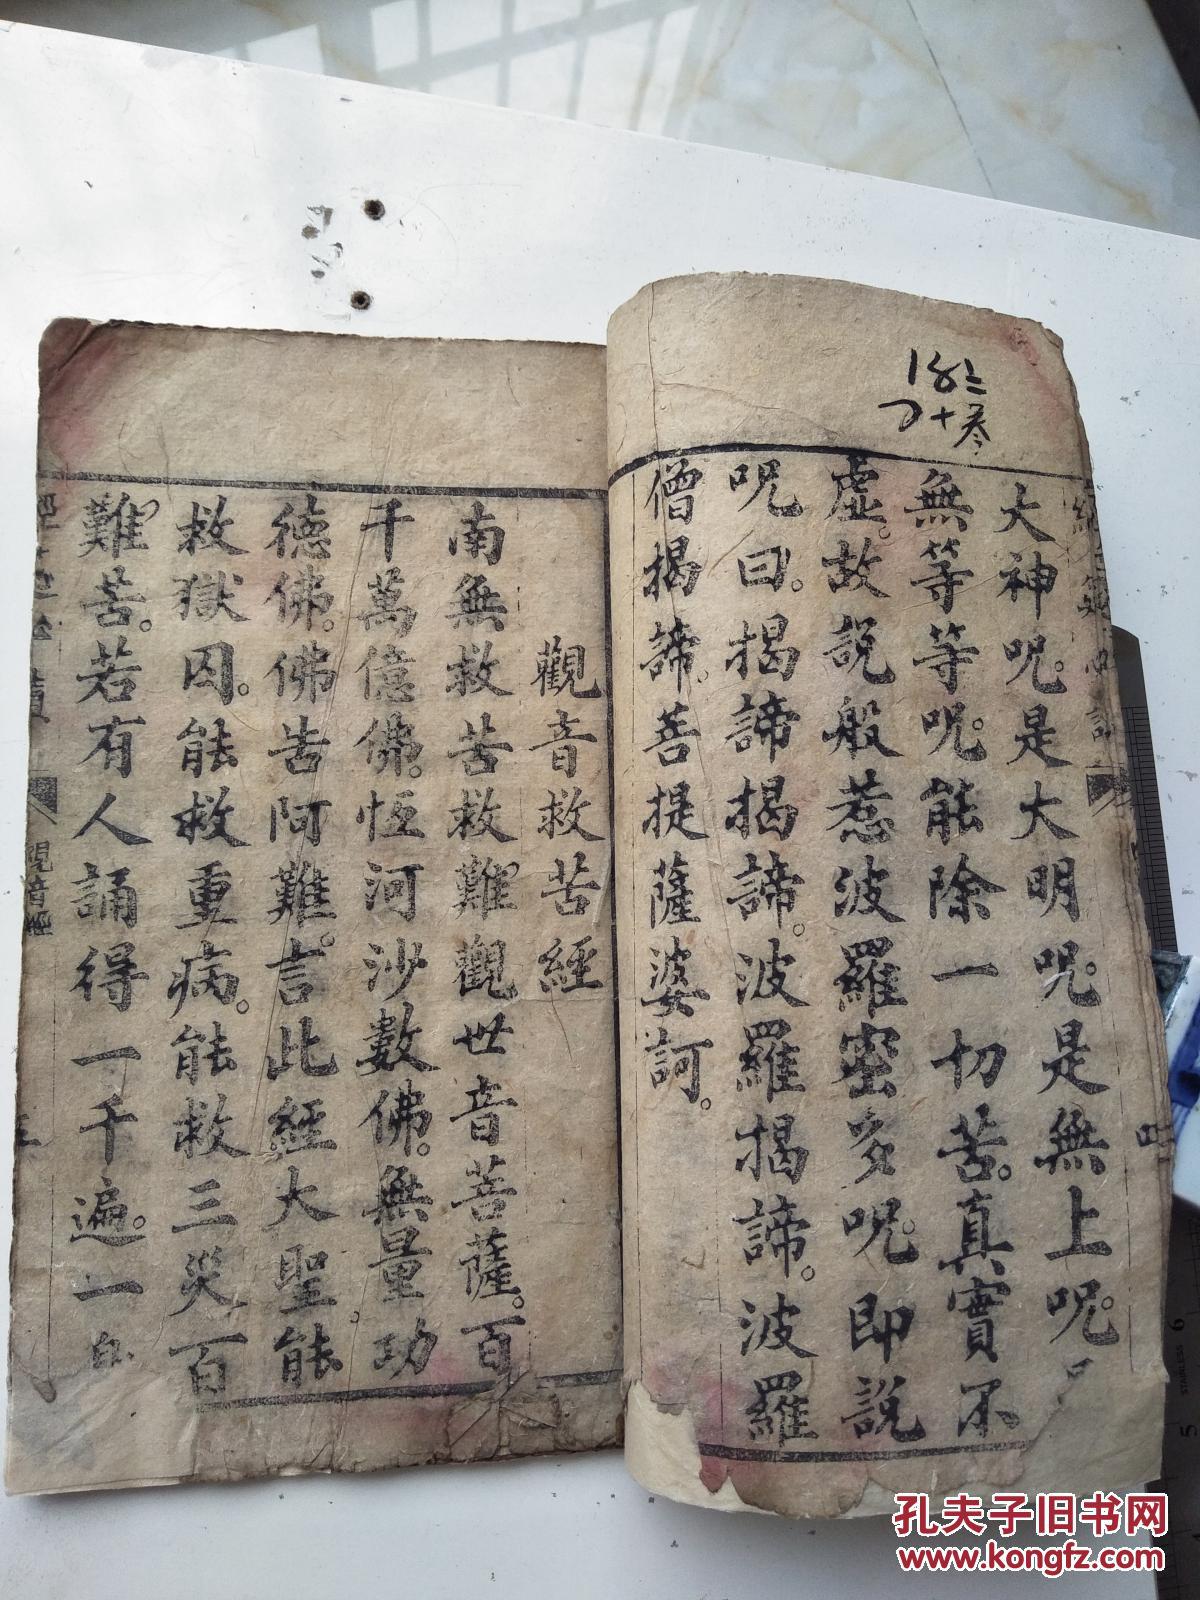 大神呪。是大明呪。是無上呪。是
無等等呪。能除一切苦。真實不
虛。故說般惹波羅密多呪。即說
呪曰。揭諦揭諦。波羅揭諦。波羅
僧揭諦。菩提薩婆訶。
四
觀音救苦經
南無救苦救難觀世音菩薩。百
千萬億佛。恆河沙數佛。無量功
德佛。佛告阿難。言此經大聖。能
救獄囚。能救重病。能救三災百
難苦。若有人誦得一千遍。一
觀音經
孔夫子旧书网
www.kongfz.com